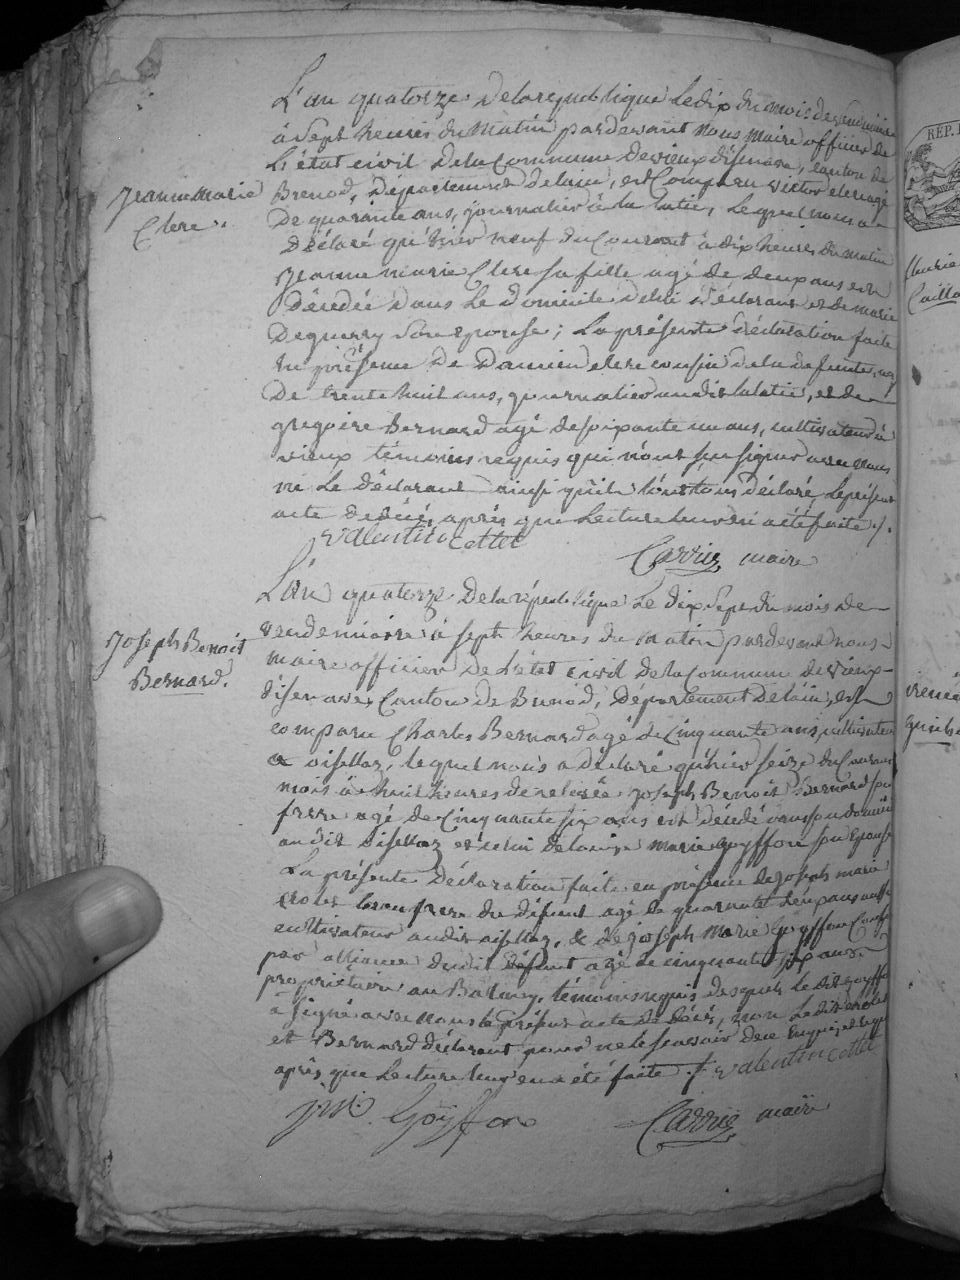 L'an quatorze de la republique le dix du mois de vendemiaire
à sept heures du matin pardevant nous maire officier de
L'état civil de la Commune de vieux d'isenave, canton de
Brenod, Département de lain, est Comparu victor clere agé
De quarante ans, journalier à la latie, Lequel nous a
Déclaré qu'hier neuf du Courant à dix heures du matin
Jeanne marie Clere sa fille agé de deux ans est
Décédée Dans Le Domicile delui déclarant et de marie
Dequerry Son epouse; La présente déclaration faite
En présence De Damien clere cousin dela defunte, agé
De trente huit ans, journalier audit lalatie, et de
gregoire Bernard agé de soixante un ans, cultivateur à
vieux témoins requis qui n'ont su signer avec nous
ni Le déclarant ainsi qu'ils l'ont tous déclaré, le présent
acte de décé, après que Lecture leur en a été faite ./.
valentin cottet
Carrier maire
Jeanne Marie
Clere.
L'an quatorze De la république Le dix sept du mois de
vendemiaire à sept heures du matin pardevant nous
maire officier De L'état civil de la Commune de vieux
d'isenave, Canton de Brenod, Département De lain, est
comparu Charles Bernard agé de Cinquante ans, cultivateur
a oisellaz, lequel nous a déclaré qu'hier seize du Courant
mois à huit heures de relevée Joseph Benoit Bernard son
frere agé de Cinquante six ans est décédé dans son domicile
audit oisellaz et celui de marie goyffon son Epouse
La présente Déclaration faite en présence de Joseph marie
beau frere du défunt agé de quarante ans aussi
cultivateur audit oisellaz, & de joseph Marie goyffon
par alliance dudit défunt agé de cinquante six ans
propriétaire au Balmey, témoins requis desquels le dit goyffon
a signé avec nous le présent acte de décés, non Le dit
et Bernard déclarant pour ne le scavoir de ce Enquis et requis
après que Lecture leur en a été faite ./. valentin cottet
jm Goÿffon
Carrier maire
Joseph Benoit
Bernard.
REP.